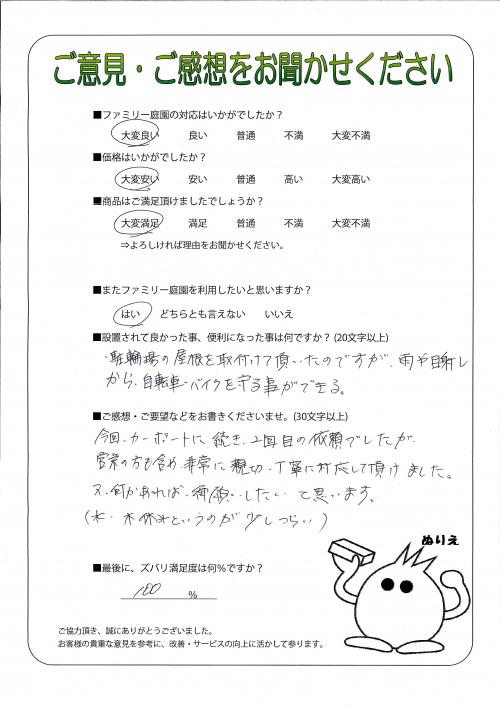 ご意見・ご感想をお聞かせください
■ファミリー庭園の対応はいかがでしたか？
大変良い 良い 普通 不満 大変不満
■価格はいかがでしたか？
大変安い 安い 普通 高い 大変高い
■商品はご満足頂けましたでしょうか？
大変満足 満足 普通 不満 大変不満
⇒よろしければ理由をお聞かせください。
■またファミリー庭園を利用したいと思いますか？
はい どちらとも言えない いいえ
■設置されて良かった事、便利になった事は何ですか？(20文字以上)
・駐輪場の屋根を取付けて頂いたのですが、雨や日射し
から、自転車・バイクを守る事ができる。
■ご感想・ご要望などをお書きくださいませ。(30文字以上)
今回、カーポートに続き、2回目の依頼でしたが、
営業の方も含め、非常に親切、丁寧に対応して頂けました。
又、何かあれば、御願いしたいと思います。
(水・木休みというのが少しつらい)
ぬりえ
■最後に、ズバリ満足度は何%ですか？
100 %
ご協力頂き、誠にありがとうございました。
お客様の貴重な意見を参考に、改善・サービスの向上に活かして参ります。